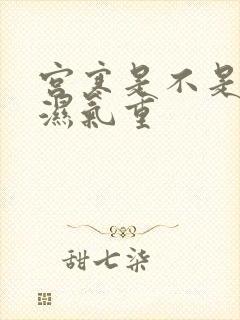 宫寒是不是
濕氣重
甜七柒